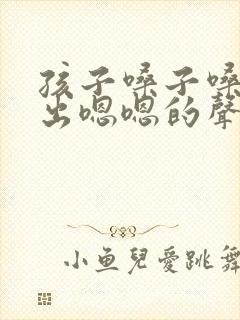 孩子嗓子嗓
出嗯嗯的聲
小魚兒愛跳舞